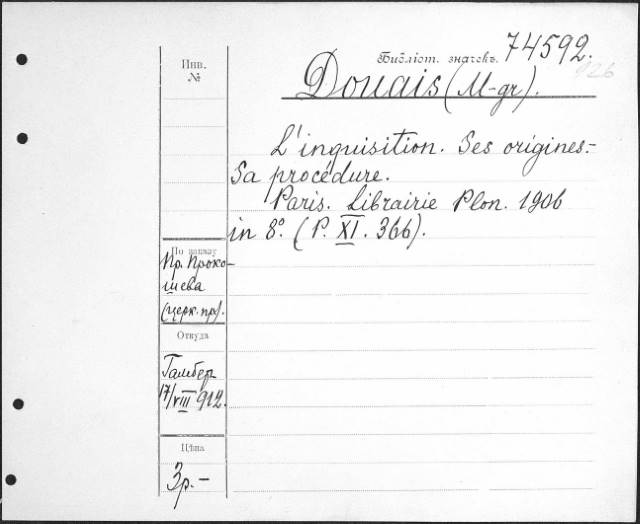 Инв.
№
Библіот. значекъ. 74592.
926
Douais (M-gr).
L'inquisition. Ses origines.-
Sa procédure.
Paris. Librairie Plon. 1906
in 8°. (P. XI. 366).
По заказу
Пр. Проко-
шева
(церк. пр).
Откуда
Гамбер
17/VIII 912.
Цѣна
3р.-